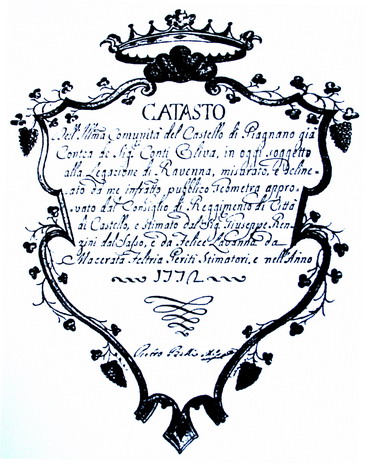 CATASTO
Dell'Illma Comunità del Castello di Piagnano già
Contea de Sigri Conti Oliva, in oggi soggetto
alla Legazione di Ravenna, misurato, e deline-
ato da me infratto publico Geometra appro-
vato dal Consiglio di Reggimento di Città
di Castello, e stimato dal Sig. Giuseppe Ren-
zini dal Sasso, e da Felice Lavanna da
Macerata Feltria Periti Stimatori, e nell'Anno
1772
Pietro